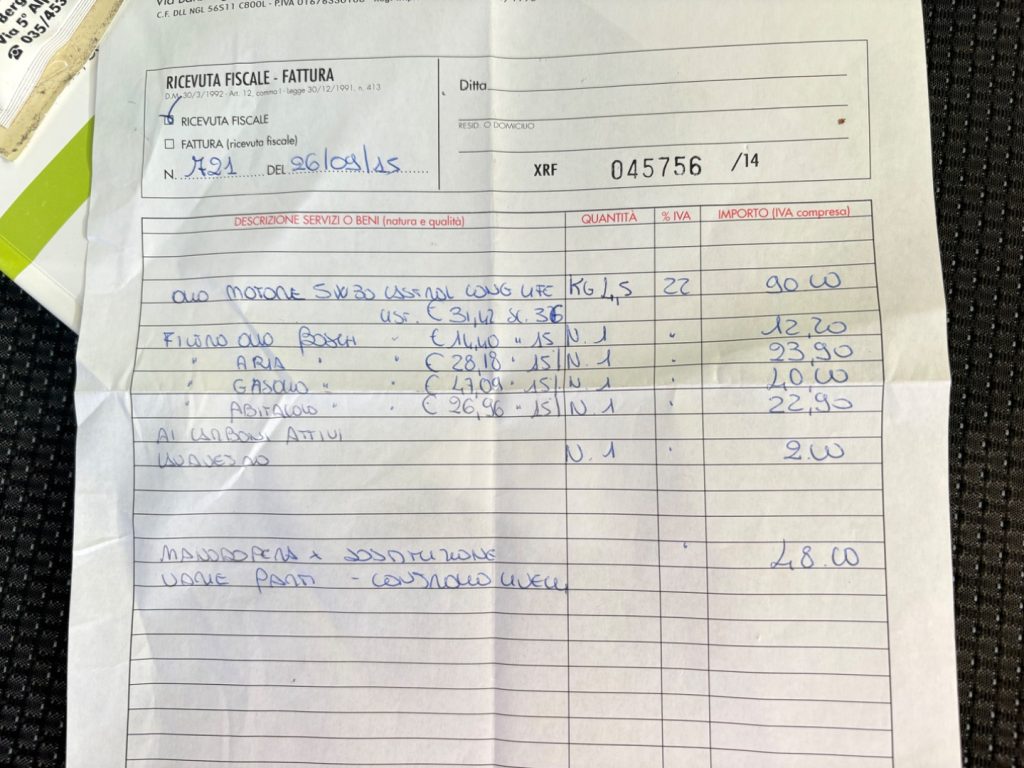 Berg
Via 5° Al
☎ 035/453
C.F. DLL NGL 56S11 C800L - P.IVA
RICEVUTA FISCALE - FATTURA
D.M. 30/3/1992 - Art. 12, comma 1 - Legge 30/12/1991, n. 413
RICEVUTA FISCALE
FATTURA (ricevuta fiscale)
N. 721 DEL 26/09/15
Ditta
RESID. O DOMICILIO
XRF 045756 /14
DESCRIZIONE SERVIZI O BENI (natura e qualità) QUANTITÀ % IVA IMPORTO (IVA compresa)
OLIO MOTORE 5W30 CASTROL LONG LIFE KG 4,5 22 90.00
LIST. € 31,42 SC. 36
FILTRO OLIO BOSCH " € 14,40 " 15 N. 1 " 12,20
" ARIA " " € 28,18 " 15 N. 1 " 23,90
" GASOLIO " " € 47,09 " 15 N. 1 " 40,00
" ABITACOLO " " € 26,96 " 15 N. 1 " 22,90
AI CARBONI ATTIVI
LAVAVETRO N. 1 " 2.00
MANODOPERA X SOSTITUZIONE " 48.00
VARIE PARTI - CONTROLLO LIVELLI